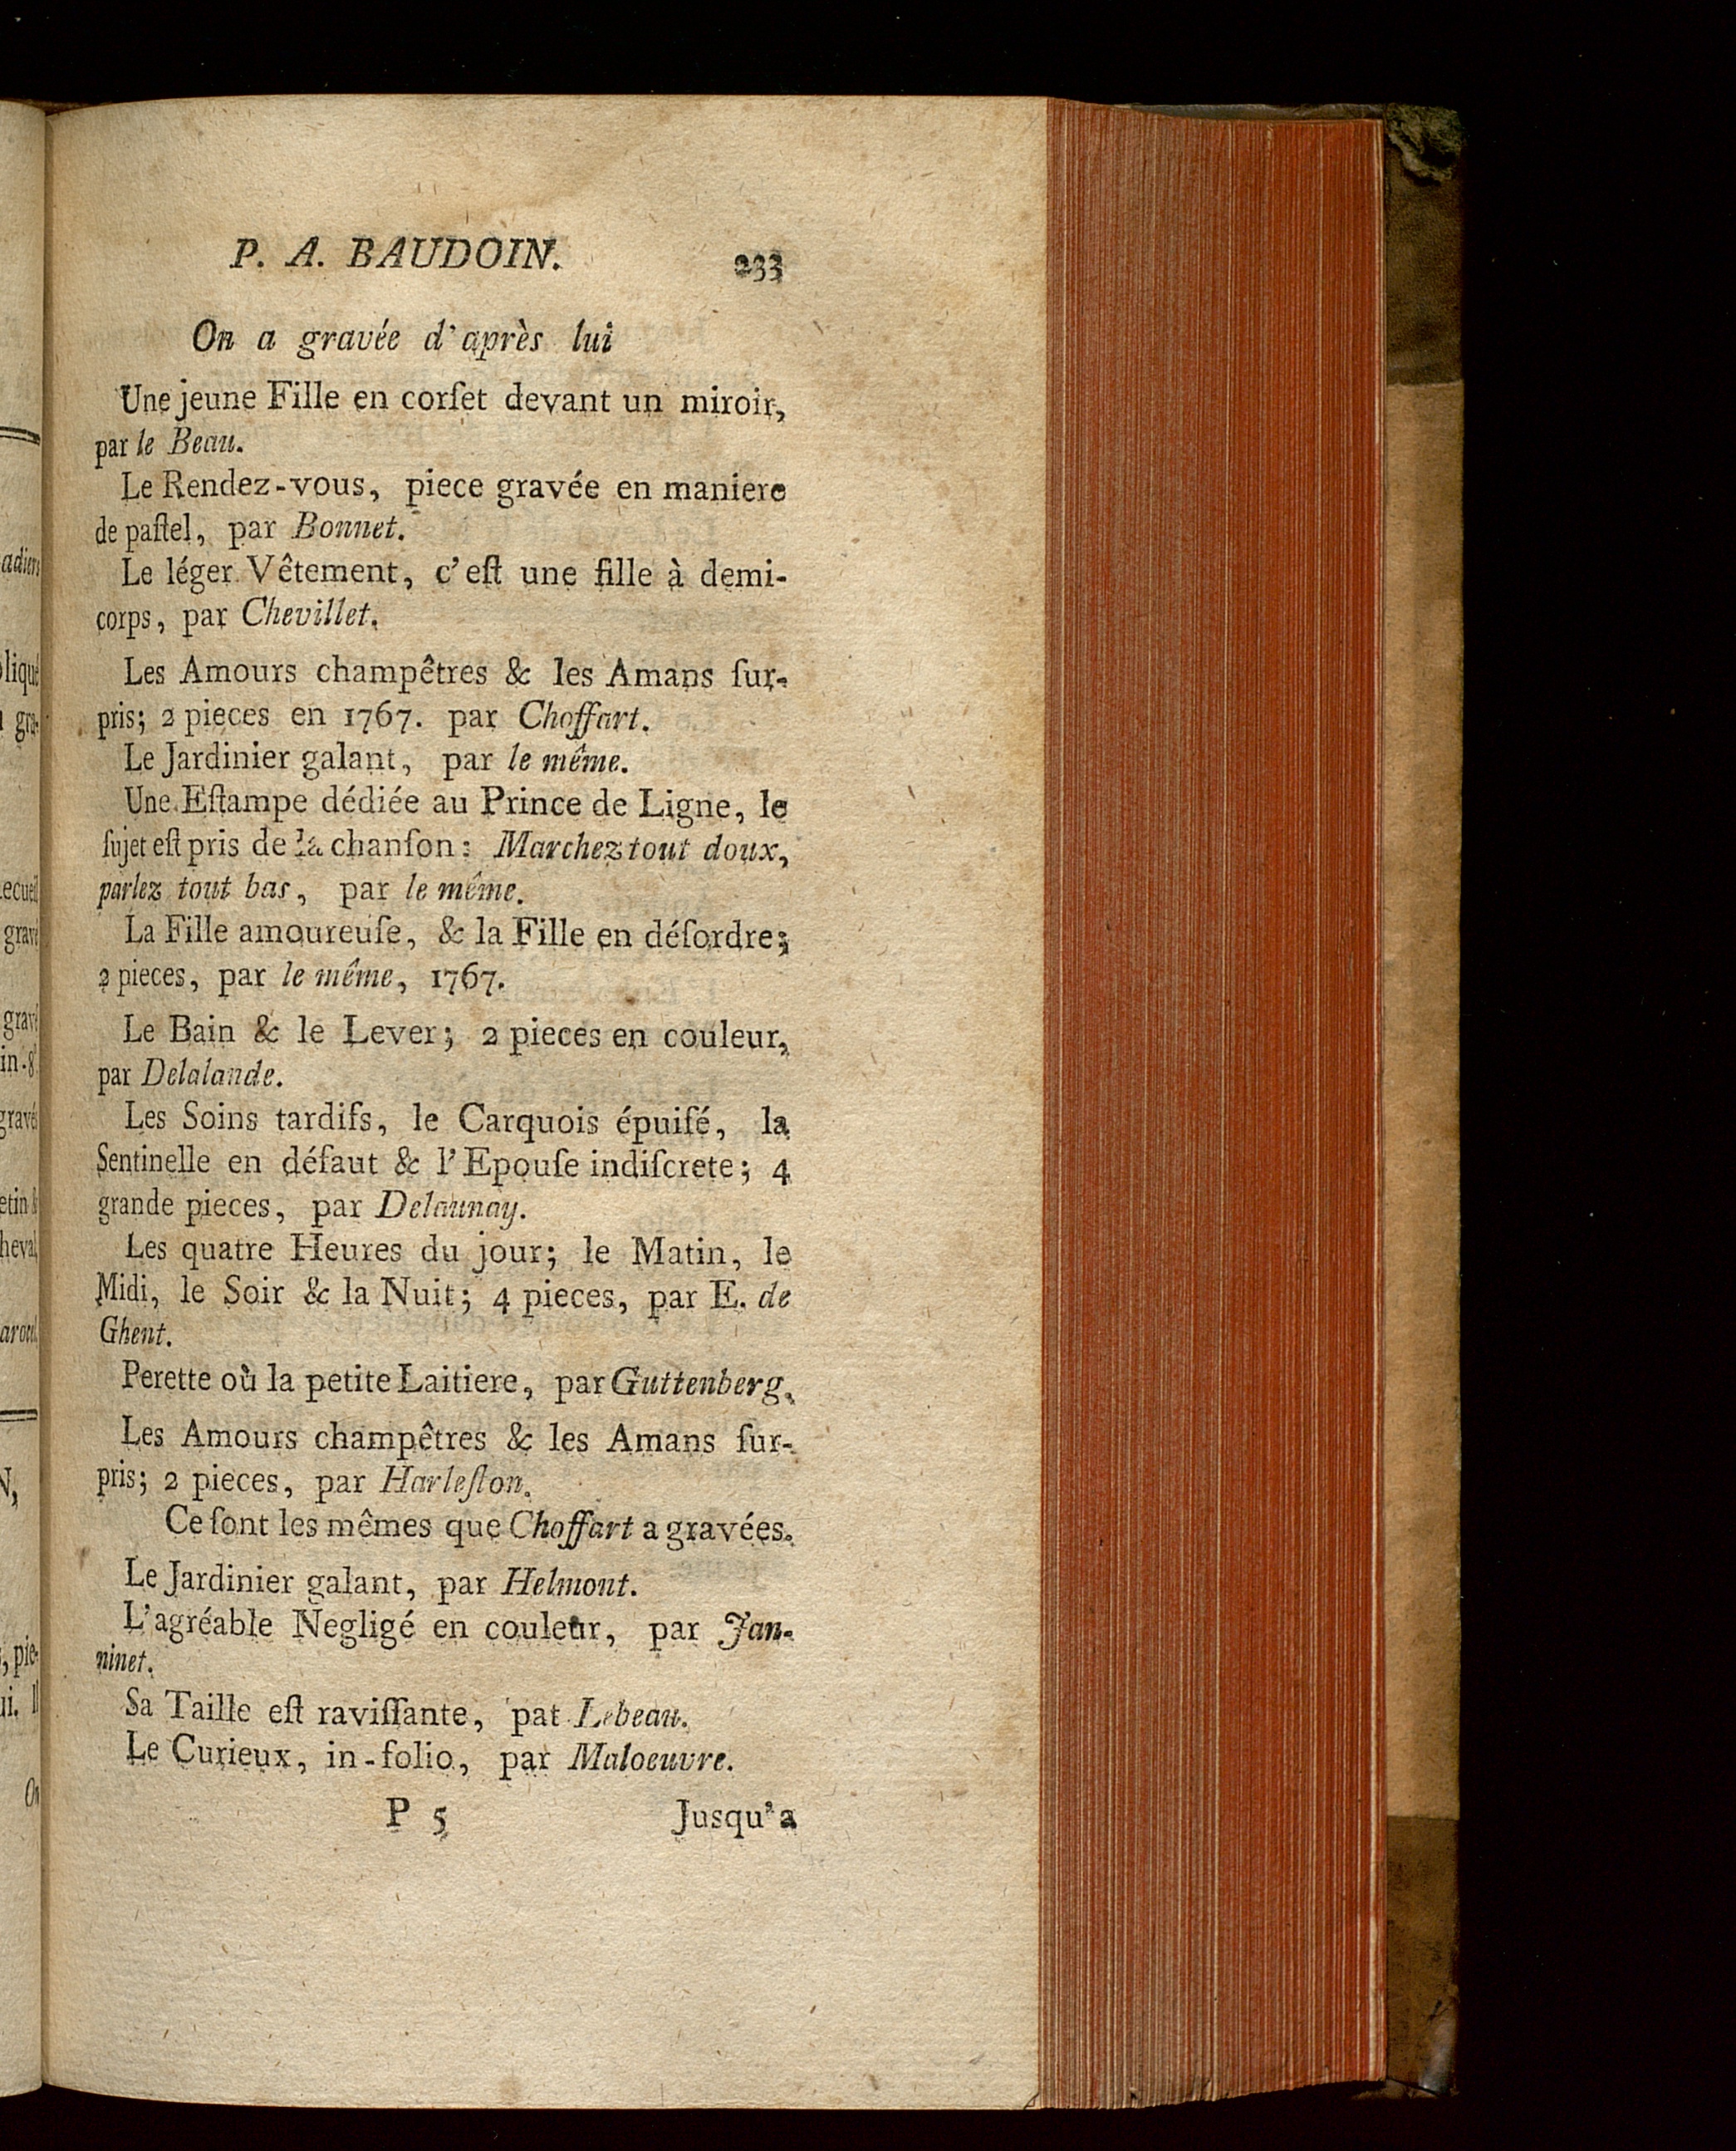 P. A. BAUDOIN. 233
On a gravée d'après lui
Une jeune Fille en corſet devant un miroir,
par le Beau.
Le Rendez-vous, piece gravée en maniere
de paſtel, par Bonnet.
Le léger Vêtement, c'eſt une fille à demi-
corps, par Chevillet.
Les Amours champêtres & les Amans ſur-
pris; 2 pieces en 1767. par Choffart.
Le Jardinier galant, par le même.
Une Eſtampe dédiée au Prince de Ligne, le
ſujet eſt pris de la chanſon: Marchez tout doux,
parlez tout bas, par le même.
La Fille amoureuſe, & la Fille en déſordre;
2 pieces, par le même, 1767.
Le Bain & le Lever; 2 pieces en couleur,
par Delalande.
Les Soins tardifs, le Carquois épuiſé, la
Sentinelle en défaut & l'Epouſe indiſcrete; 4
grande pieces, par Delaunay.
Les quatre Heures du jour; le Matin, le
Midi, le Soir & la Nuit; 4 pieces, par E. de
Ghent.
Perette où la petite Laitiere, par Guttenberg.
Les Amours champêtres & les Amans ſur-
pris; 2 pieces, par Harleſton.
Ce ſont les mêmes que Choffart a gravées.
Le Jardinier galant, par Helmont.
L'agréable Negligé en couleur, par Jan-
ninet.
Sa Taille eſt raviſſante, pat Lebeau.
Le Curieux, in-folio, par Maloeuvre.
P 5 Jusqu'a